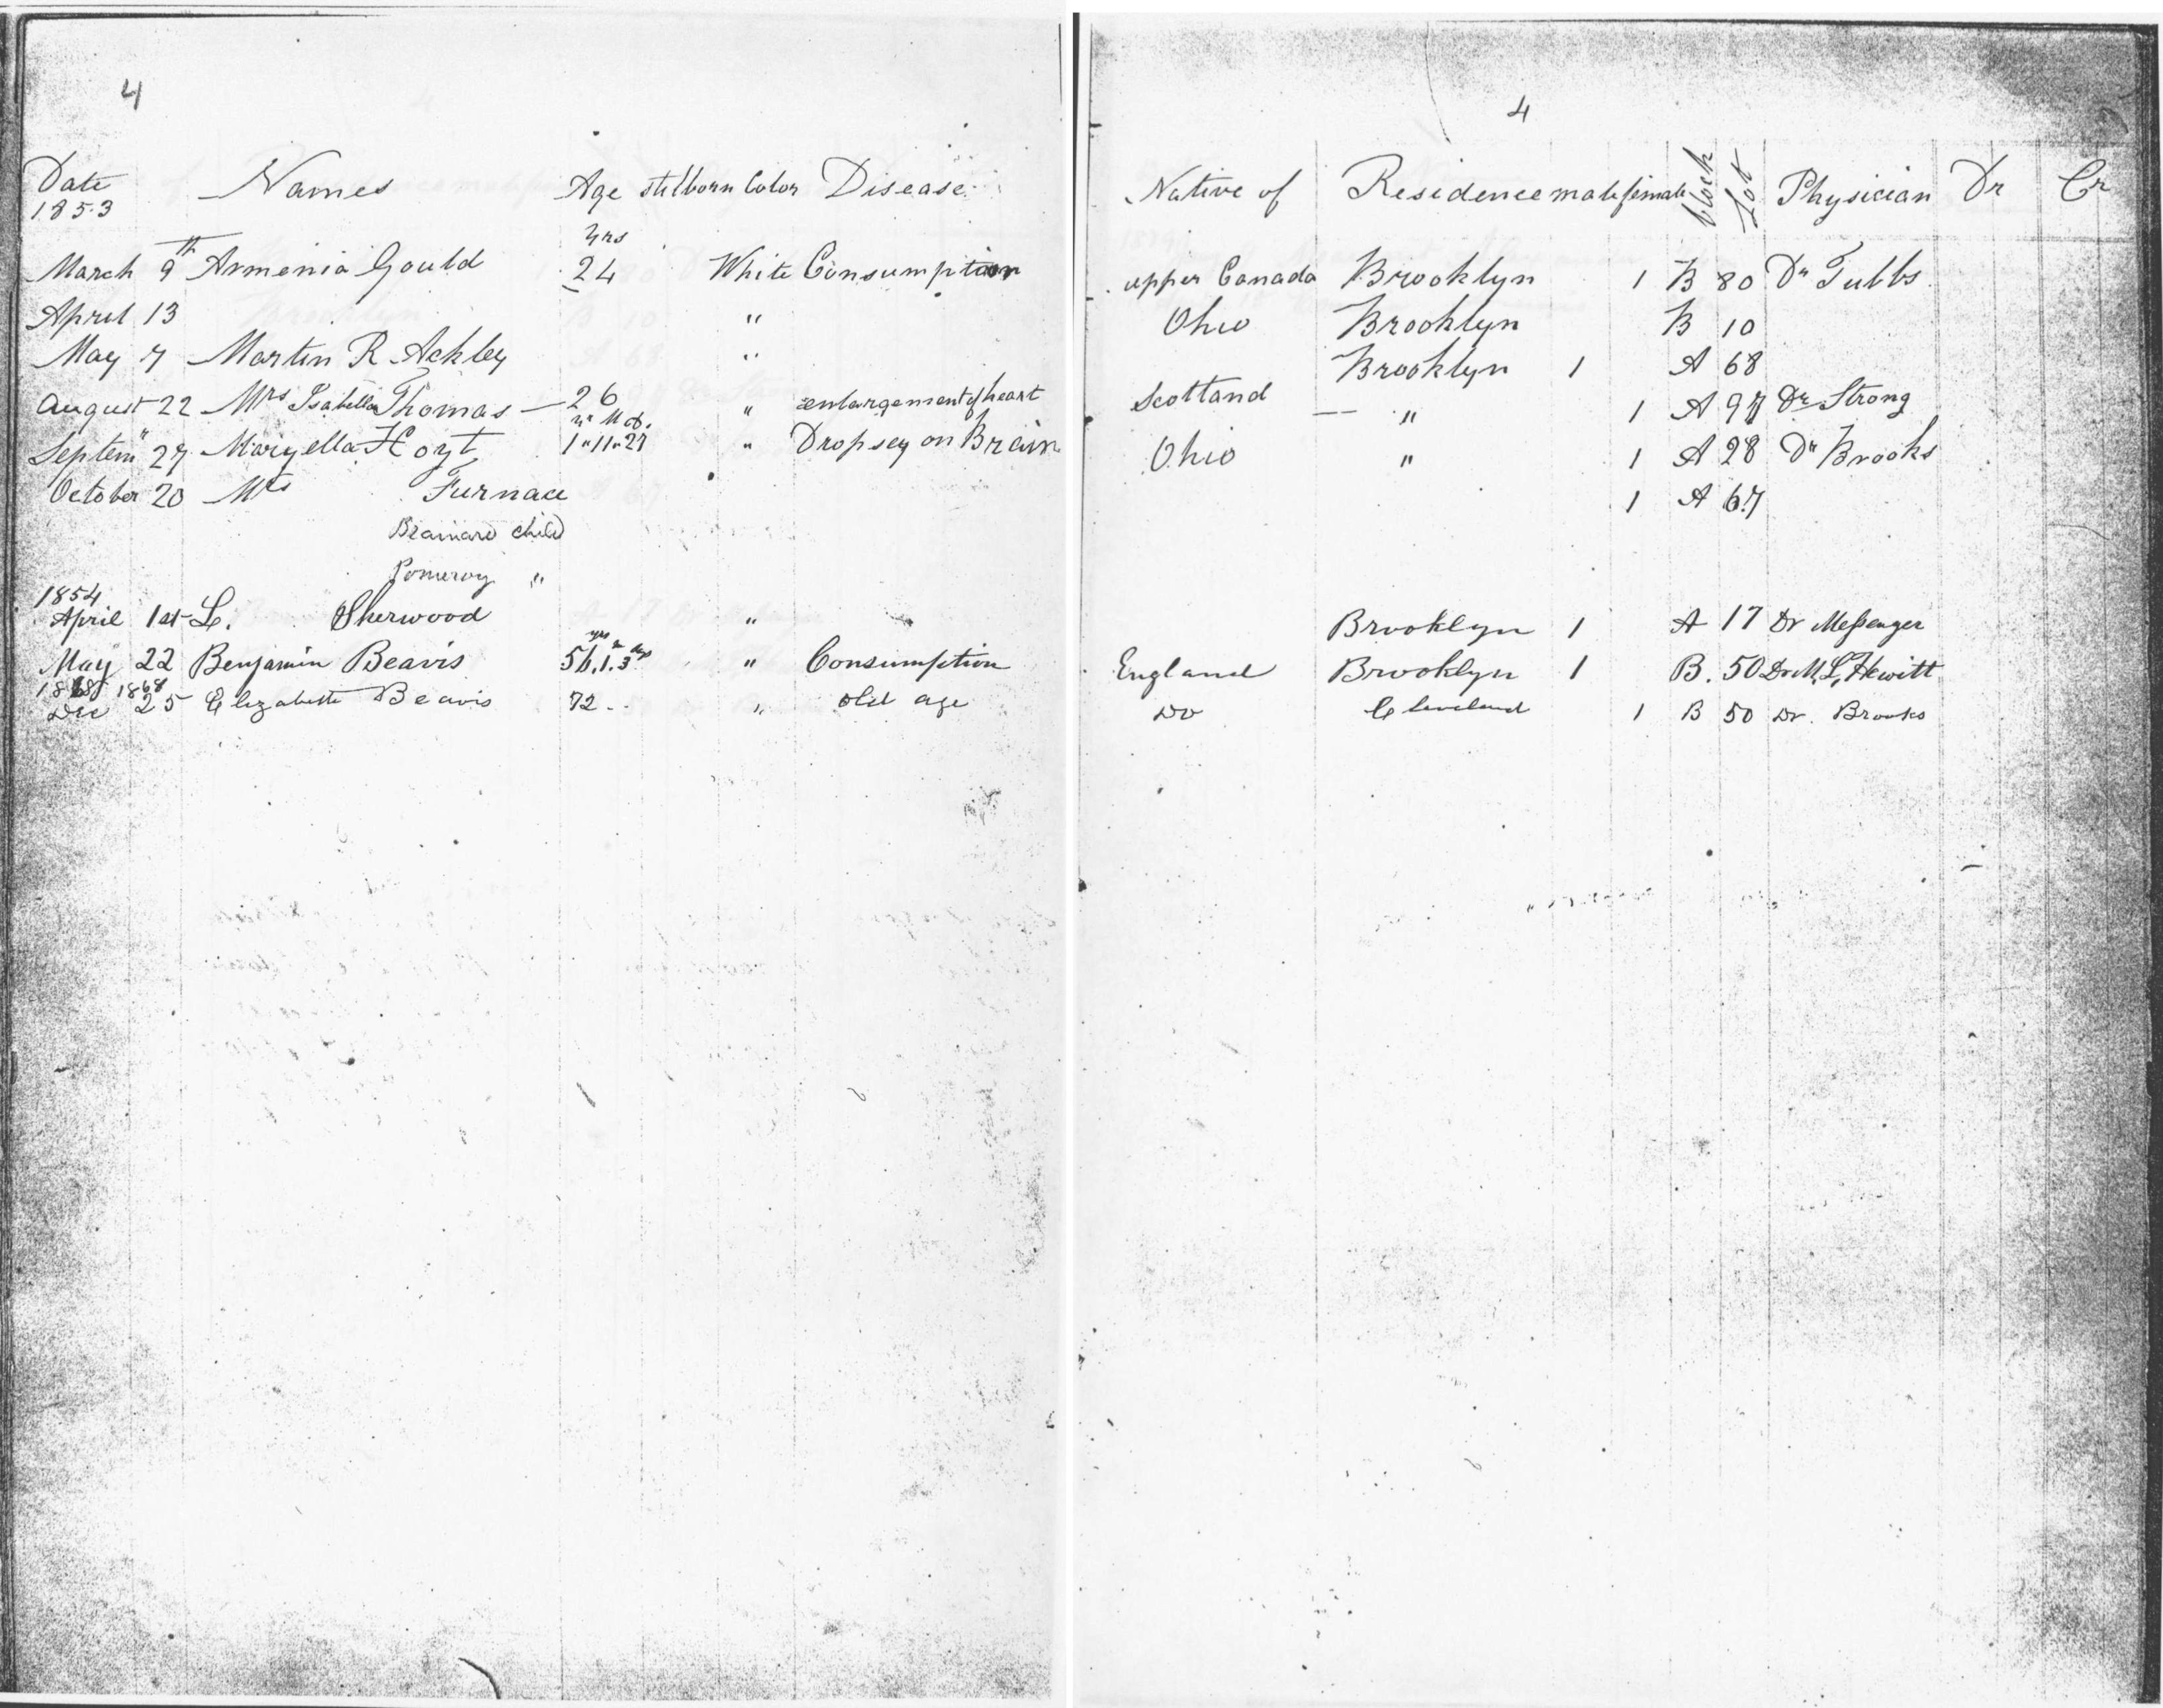 4
Date Names Age stilborn Color Disease
1853
yrs
March 9th Armenia Gould 24 White Consumption
April 13 "
May 7 Martin R Ackley "
August 22 Mrs Isabella Thomas — 26 " enlargement of heart
Septem" 27 Maryella Hoyt 1 " 11 " 27 " Dropsey on Brain
October 20 Mrs Furnace
Brainard child
Pomeroy "
1854
April 1st L. Sherwood "
yrs
May 22 Benjamin Beavis 56.1.3 " Consumption
1868
Dec 25 Elizabeth Beavis 72 " old age
4
Native of Residence male female block Lot Physician Dr Cr
upper Canada Brooklyn 1 B 80 Dr Tubbs
Ohio Brooklyn B 10
Brooklyn 1 A 68
Scotland — " 1 A 97 Dr Strong
Ohio " 1 A 28 Dr Brooks
1 A 67
Brooklyn 1 A 17 Dr Messenger
England Brooklyn 1 B. 50 Dr M. L. Hewitt
Do Cleveland 1 B 50 Dr. Brooks